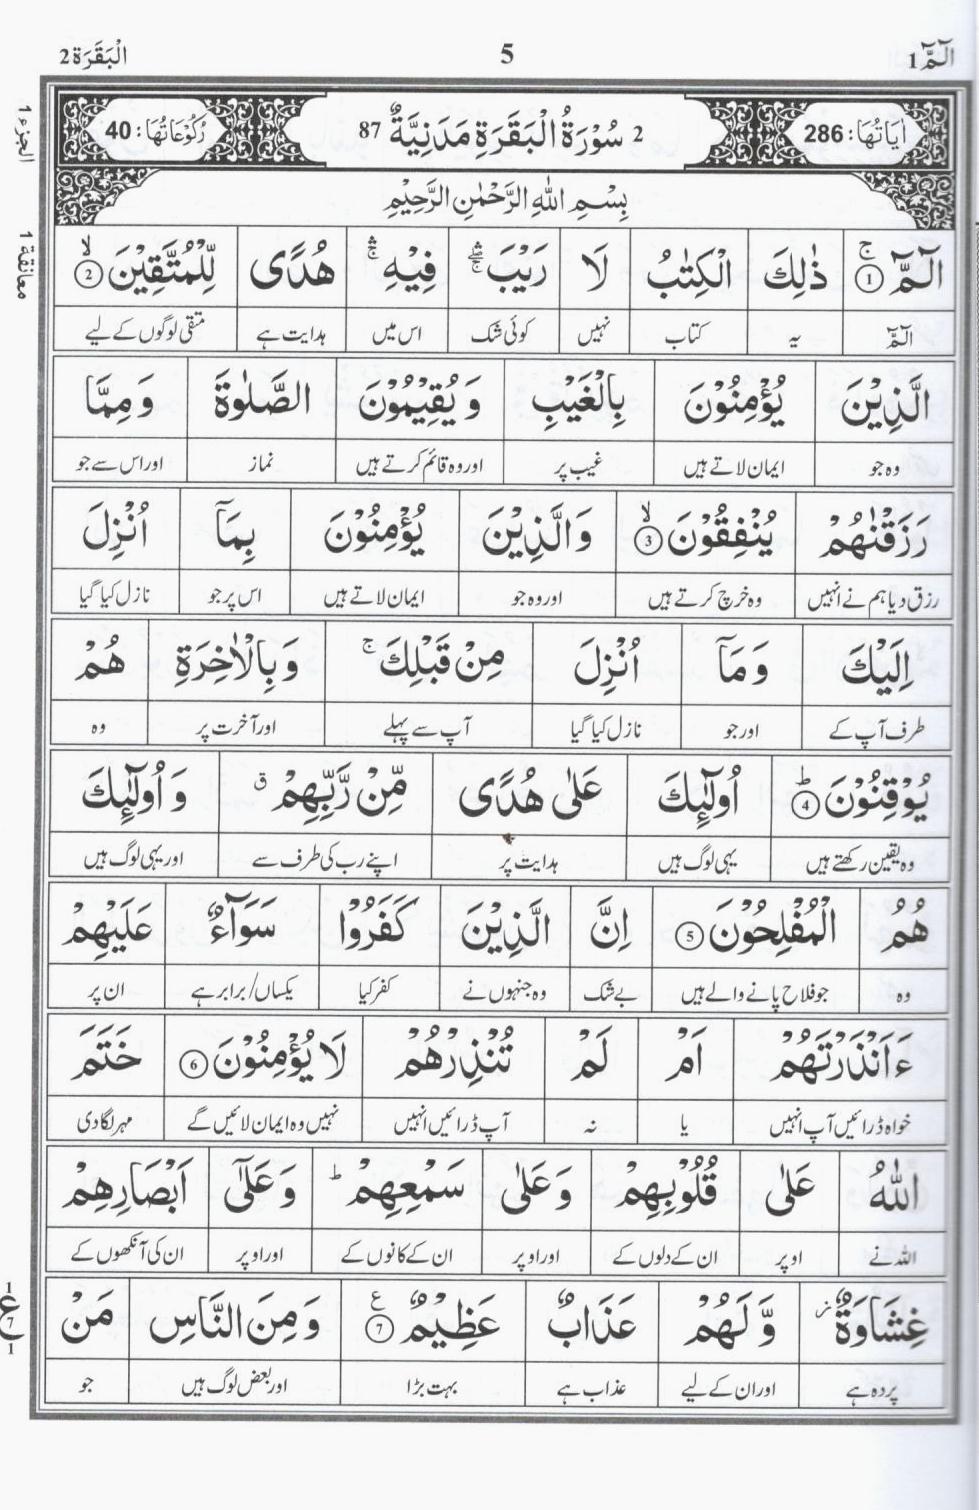 الٓمّٓ 1 5 الْبَقَرَة 2
اٰيَاتُهَا: 286 2 سُوْرَةُ الْبَقَرَةِ مَدَنِيَّةٌ 87 رُكُوْعَاتُهَا: 40
الجزء ١
بِسْمِ اللّٰهِ الرَّحْمٰنِ الرَّحِيْمِ
معانقة ١
الٓمّٓ ۚ ① ذٰلِكَ الْكِتٰبُ لَا رَيْبَ ۛۖۚ فِيْهِ ۛۚ هُدًى لِّلْمُتَّقِيْنَ ۙ ②
الٓمّٓ یہ کتاب نہیں کوئی شک اس میں ہدایت ہے متقی لوگوں کے لیے
الَّذِيْنَ يُؤْمِنُوْنَ بِالْغَيْبِ وَيُقِيْمُوْنَ الصَّلٰوةَ وَمِمَّا
وہ جو ایمان لاتے ہیں غیب پر اور وہ قائم کرتے ہیں نماز اور اس سے جو
رَزَقْنٰهُمْ يُنْفِقُوْنَ ۙ ③ وَالَّذِيْنَ يُؤْمِنُوْنَ بِمَآ اُنْزِلَ
رزق دیا ہم نے انہیں وہ خرچ کرتے ہیں اور وہ جو ایمان لاتے ہیں اس پر جو نازل کیا گیا
اِلَيْكَ وَمَآ اُنْزِلَ مِنْ قَبْلِكَ ۚ وَبِالْاٰخِرَةِ هُمْ
طرف آپ کے اور جو نازل کیا گیا آپ سے پہلے اور آخرت پر وہ
يُوْقِنُوْنَ ؕ ④ اُولٰٓئِكَ عَلٰى هُدًى مِّنْ رَّبِّهِمْ ۗ وَاُولٰٓئِكَ
وہ یقین رکھتے ہیں یہی لوگ ہیں ہدایت پر اپنے رب کی طرف سے اور یہی لوگ ہیں
هُمُ الْمُفْلِحُوْنَ ⑤ اِنَّ الَّذِيْنَ كَفَرُوْا سَوَآءٌ عَلَيْهِمْ
وہ جو فلاح پانے والے ہیں بے شک وہ جنہوں نے کفر کیا یکساں/برابر ہے ان پر
ءَاَنْذَرْتَهُمْ اَمْ لَمْ تُنْذِرْهُمْ لَا يُؤْمِنُوْنَ ⑥ خَتَمَ
خواہ ڈرائیں آپ انہیں یا نہ آپ ڈرائیں انہیں نہیں وہ ایمان لائیں گے مہر لگا دی
اللّٰهُ عَلٰى قُلُوْبِهِمْ وَعَلٰى سَمْعِهِمْ ؕ وَعَلٰٓى اَبْصَارِهِمْ
اللہ نے اوپر ان کے دلوں کے اور اوپر ان کے کانوں کے اور اوپر ان کی آنکھوں کے
غِشَاوَةٌ ۫ وَّلَهُمْ عَذَابٌ عَظِيْمٌ ⑦ ع وَمِنَ النَّاسِ مَنْ
پردہ ہے اور ان کے لیے عذاب ہے بہت بڑا اور بعض لوگ ہیں جو
١ ع ٧ ١